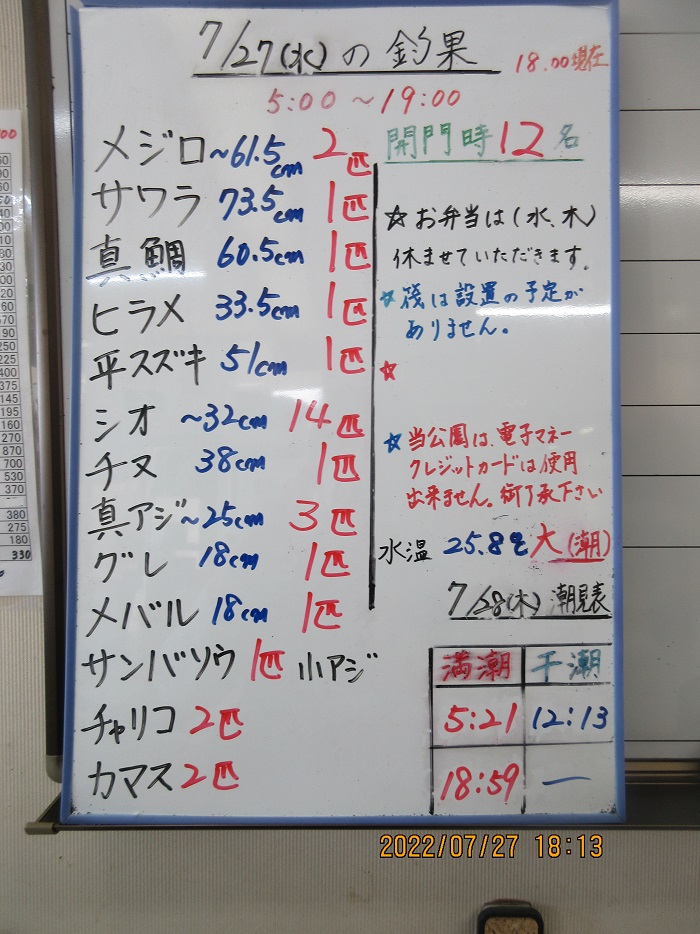 7/27(水)の釣果
18.00現在
5:00～19:00
開門時12名
メジロ ~61.5cm 2匹
サワラ 73.5cm 1匹
真鯛 60.5cm 1匹
ヒラメ 33.5cm 1匹
平スズキ 51cm 1匹
シオ ~32cm 14匹
チヌ 38cm 1匹
真アジ ~25cm 3匹
グレ 18cm 1匹
メバル 18cm 1匹
サンバソウ 1匹 小アジ
チャリコ 2匹
カマス 2匹
☆お弁当は(水、木)
休ませていただきます。
☆筏は設置の予定が
ありません。
☆
☆当公園は、電子マネー
クレジットカードは使用
出来ません。御了承下さい
水温 25.8℃ 大(潮)
7/28(木)潮見表
満潮 干潮
5:21 12:13
18:59 ー
00
60
90
380
275
180
330
2022/07/27 18:13